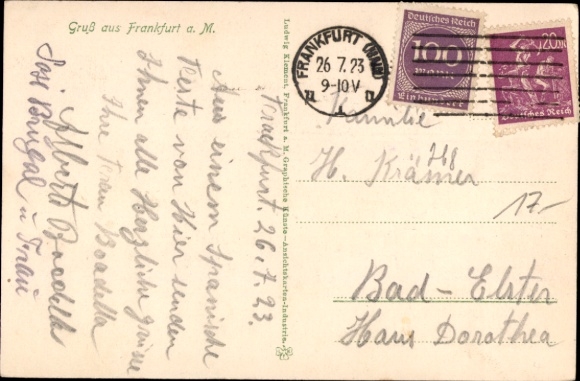 Gruß aus Frankfurt a. M.
Frankfurt. 26.7.23.
Aus einem Spanische
Feste von Hier senden
Ihnen alle Herzliche grüsse
Ihre Frau Boadella
Alberto Boadella
José Brugal u Frau
Ludwig Klement, Frankfurt a. M. Graphische Künste-Ansichtskarten-Industrie.
FRANKFURT (MAIN)
26 7.23
9-10 V
1
Deutsches Reich
100
Mark
Einhundert
20 M
Deutsches Reich
Familie
H. Krämer
268
17-
Bad-Elster
Haus Dorothea